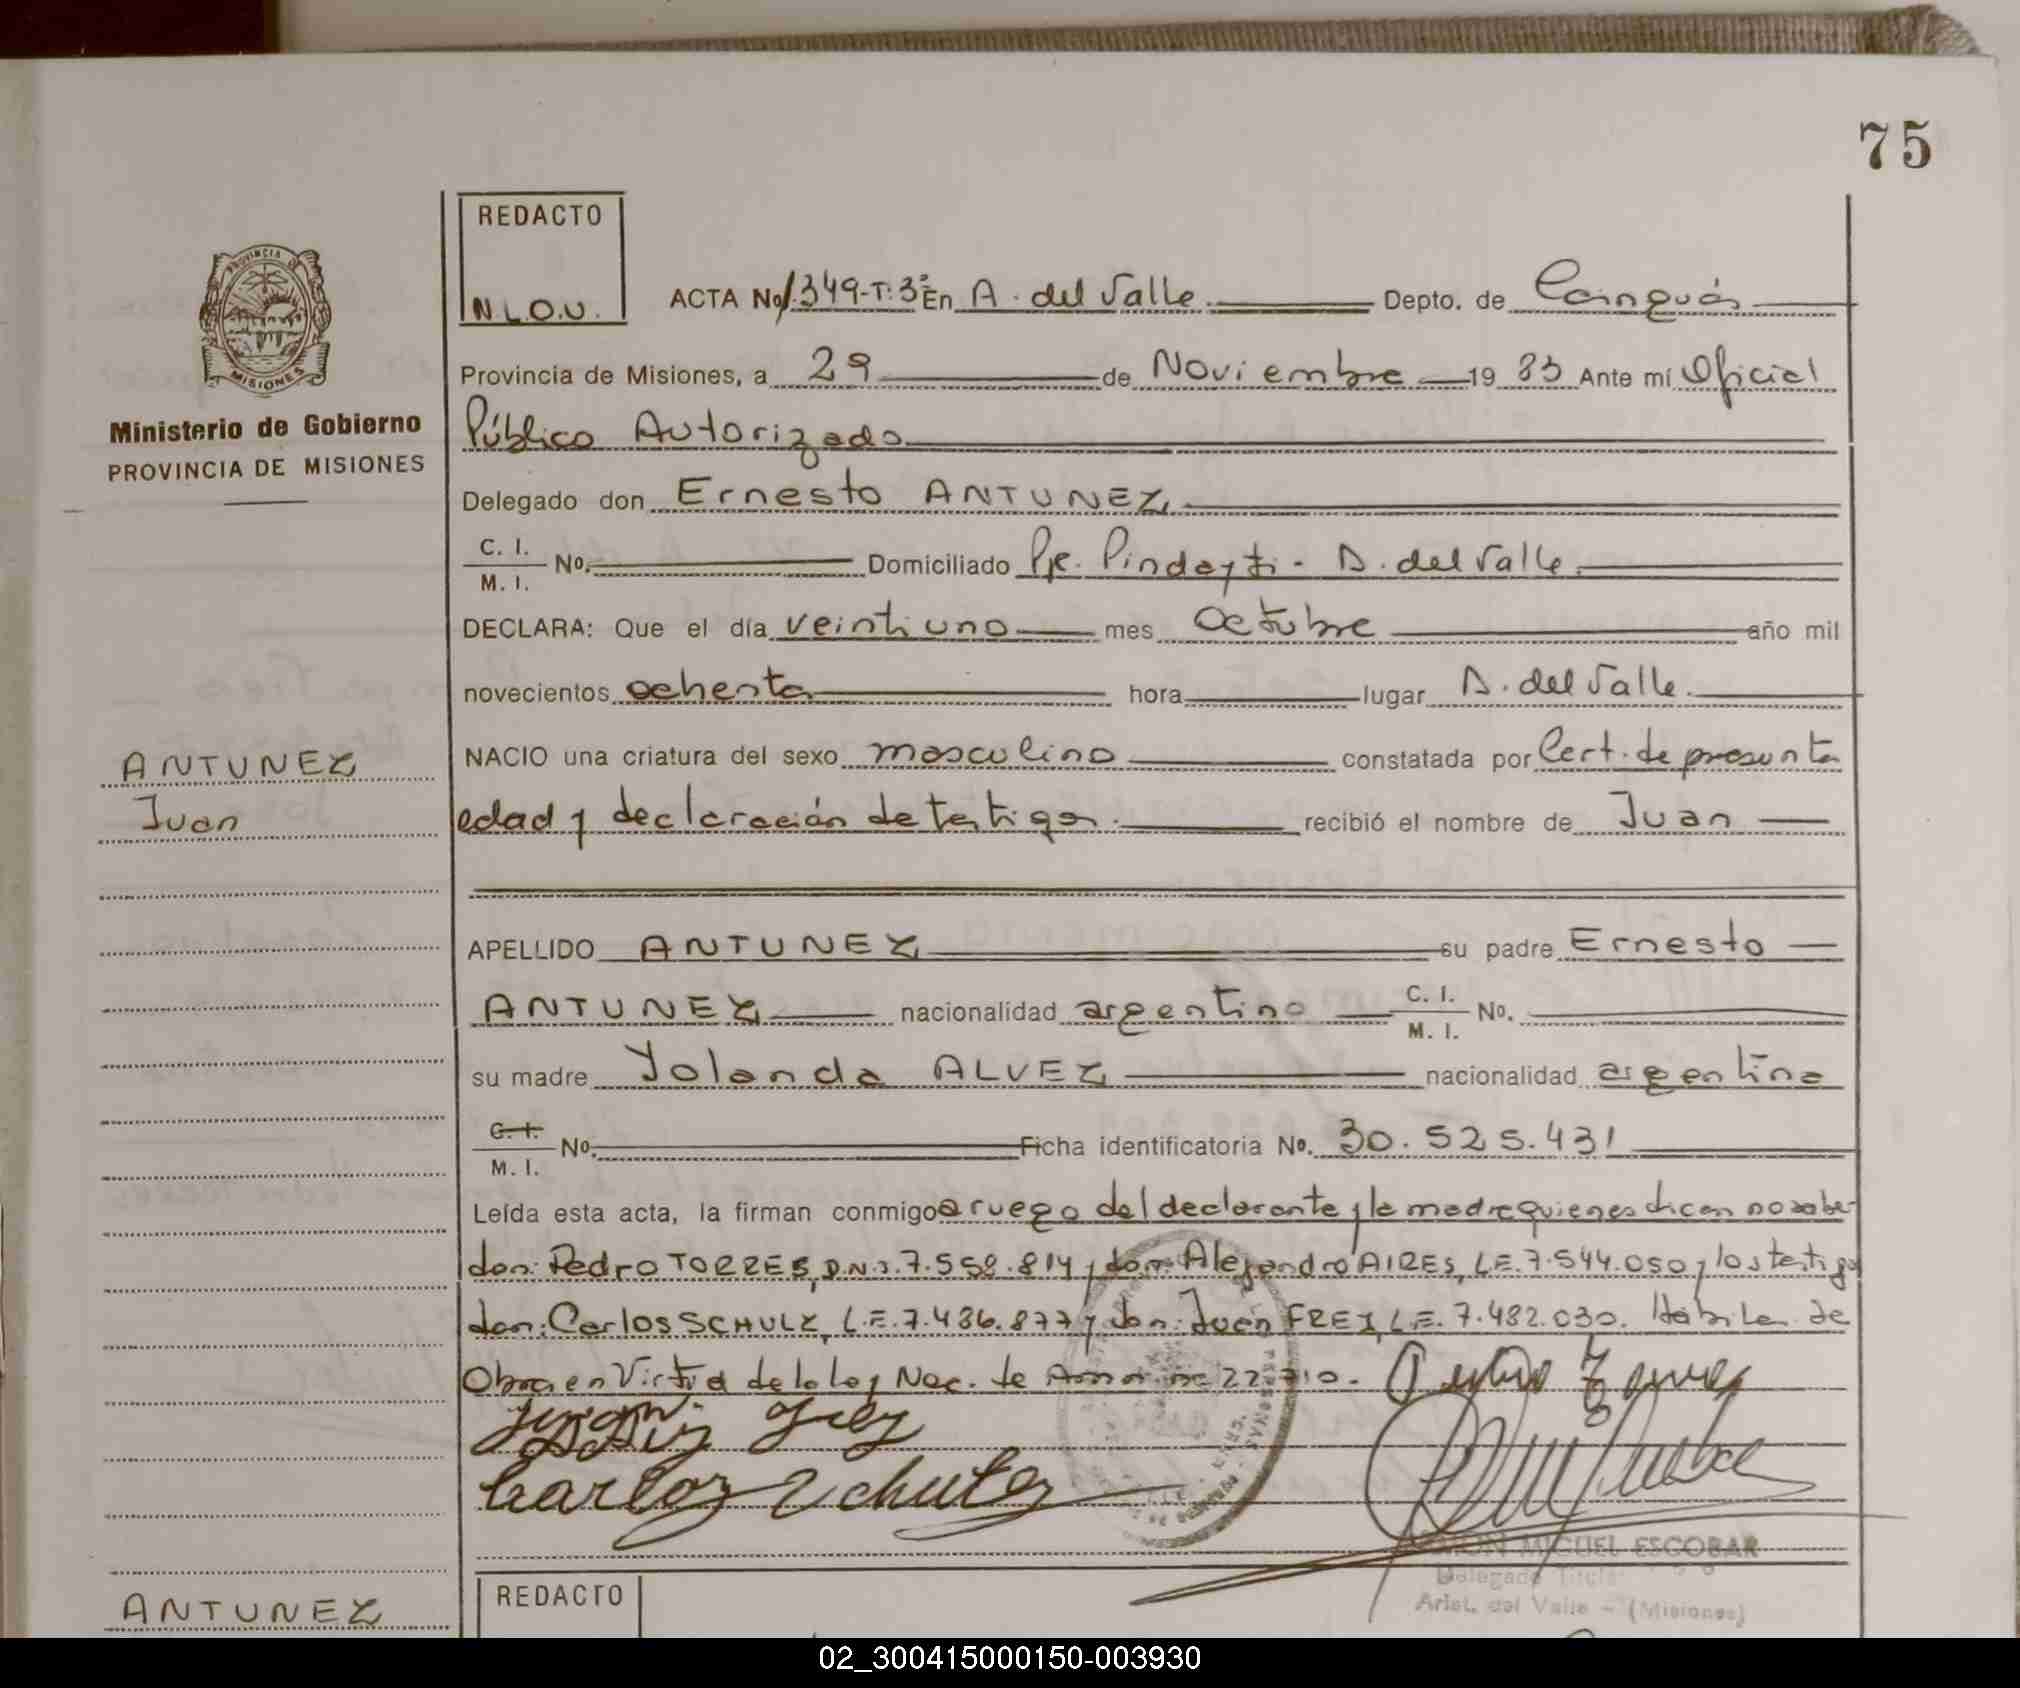 75
REDACTO
N.L.O.U.
PROVINCIA DE
MISIONES
Ministerio de Gobierno
PROVINCIA DE MISIONES
ACTA No 1.349-T:3º En A. del Valle Depto. de Cainguás
Provincia de Misiones, a 29 de Noviembre 19 83 Ante mí Oficial
Público Autorizado
Delegado don Ernesto ANTUNEZ
C. I. M. I. No. Domiciliado Pje. Pindayti - A. del Valle
DECLARA: Que el día veintiuno mes Octubre año mil
novecientos ochenta hora lugar A. del Valle.
NACIO una criatura del sexo masculino constatada por Cert. de presunta
edad y declaración de testigos. recibió el nombre de Juan
ANTUNEZ
Juan
APELLIDO ANTUNEZ su padre Ernesto
ANTUNEZ nacionalidad argentino C. I. M. I. No.
su madre Yolanda ALVEZ nacionalidad argentina
C. I. M. I. No. Ficha identificatoria No. 30.525.431
Leída esta acta, la firman conmigo a ruego del declarante y la madre quienes dicen no saber
don: Pedro TORRES, D.N.I. 7.558.814 y don: Alejandro AIRES, L.E. 7.544.050 y los testigos
don: Carlos SCHULZ, L.E. 7.436.877 y don: Juan FREY, L.E. 7.482.030. Habilen de
Obra en Virtud de la ley Nac. de 22.710.-
Pedro Torres
Carlos Schulz
MIGUEL ESCOBAR
Delegado Titular
Arist. del Valle - (Misiones)
ANTUNEZ
REDACTO
02_300415000150-003930